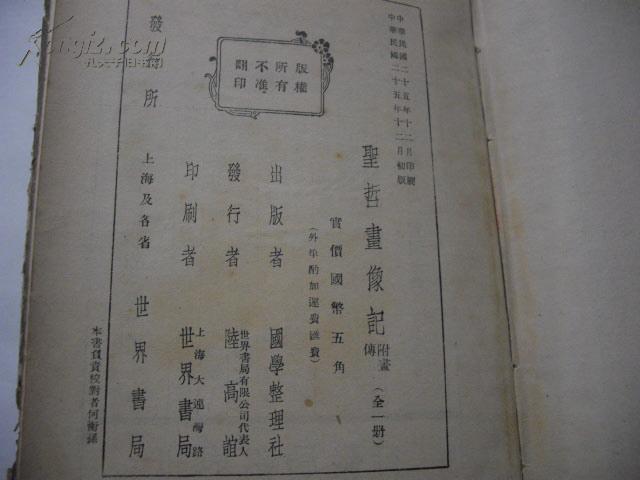 中華民國二十五年十二月印刷
中華民國二十五年十二月初版
聖哲畫像記 附畫傳 (全一册)
實價國幣五角
(外埠酌加運費匯費)
出版者 國學整理社
發行者 世界書局有限公司代表人 陸高誼
印刷者 上海大連灣路 世界書局
發行所 上海及各省 世界書局
版權所有不准翻印
本書負責校對者何衡孫
孔夫子旧书网